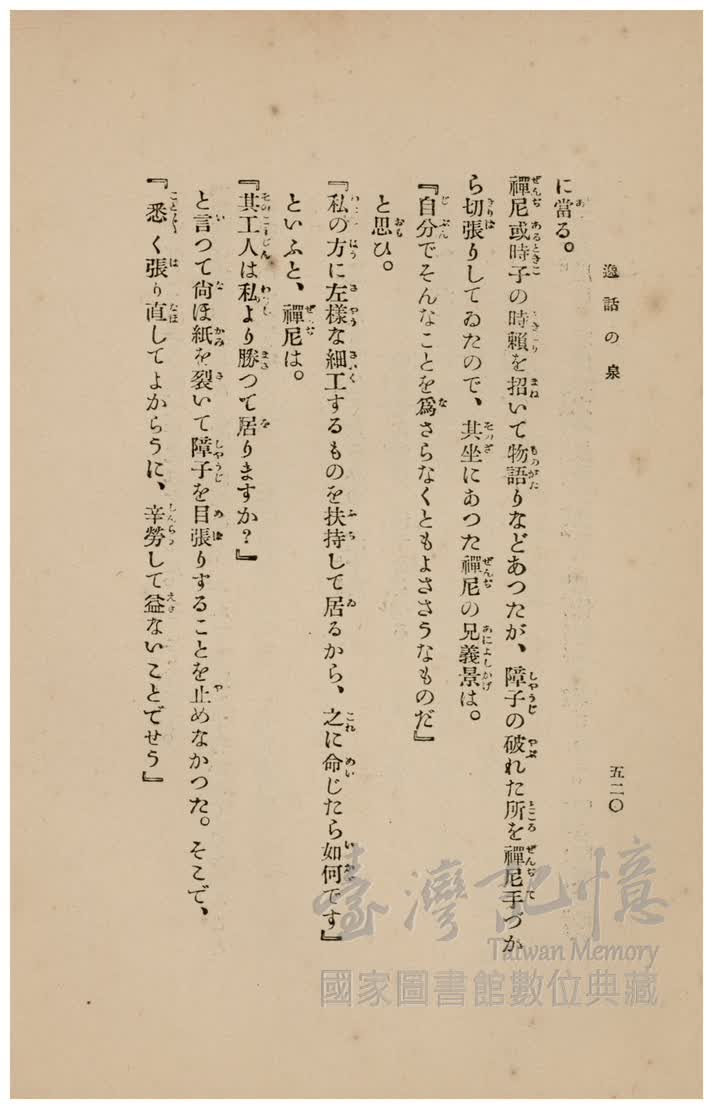 逸話の泉
五二〇
に當る。
禪尼或時子の時頼を招いて物語りなどあつたが、障子の破れた所を禪尼手づか
ら切張りしてゐたので、其坐にあつた禪尼の兄義景は。
『自分でそんなことを爲さらなくともよささうなものだ』
と思ひ。
『私の方に左樣な細工するものを扶持して居るから、之に命じたら如何です』
といふと、禪尼は。
『其工人は私より勝つて居りますか？』
と言つて尙ほ紙を裂いて障子を目張りすることを止めなかつた。そこで、
『悉く張り直してよからうに、辛勞して益ないことでせう』
臺灣記憶
Taiwan Memory
國家圖書館數位典藏